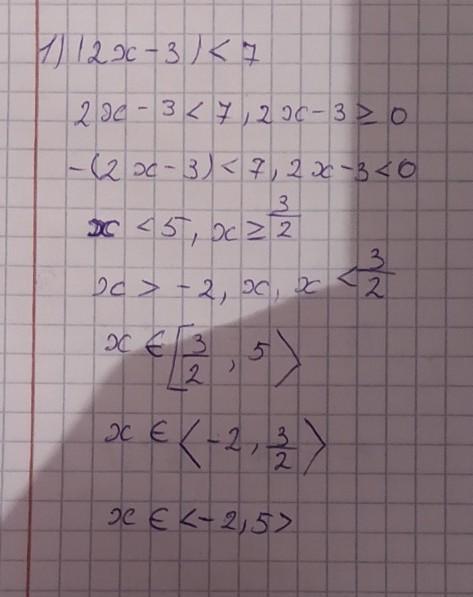 1) |2x-3|<7
2x-3<7, 2x-3≥0
-(2x-3)<7, 2x-3<0
x<5, x≥3/2
x>-2, x, x<3/2
x∈[3/2, 5⟩
x∈⟨-2, 3/2⟩
x∈<-2,5>